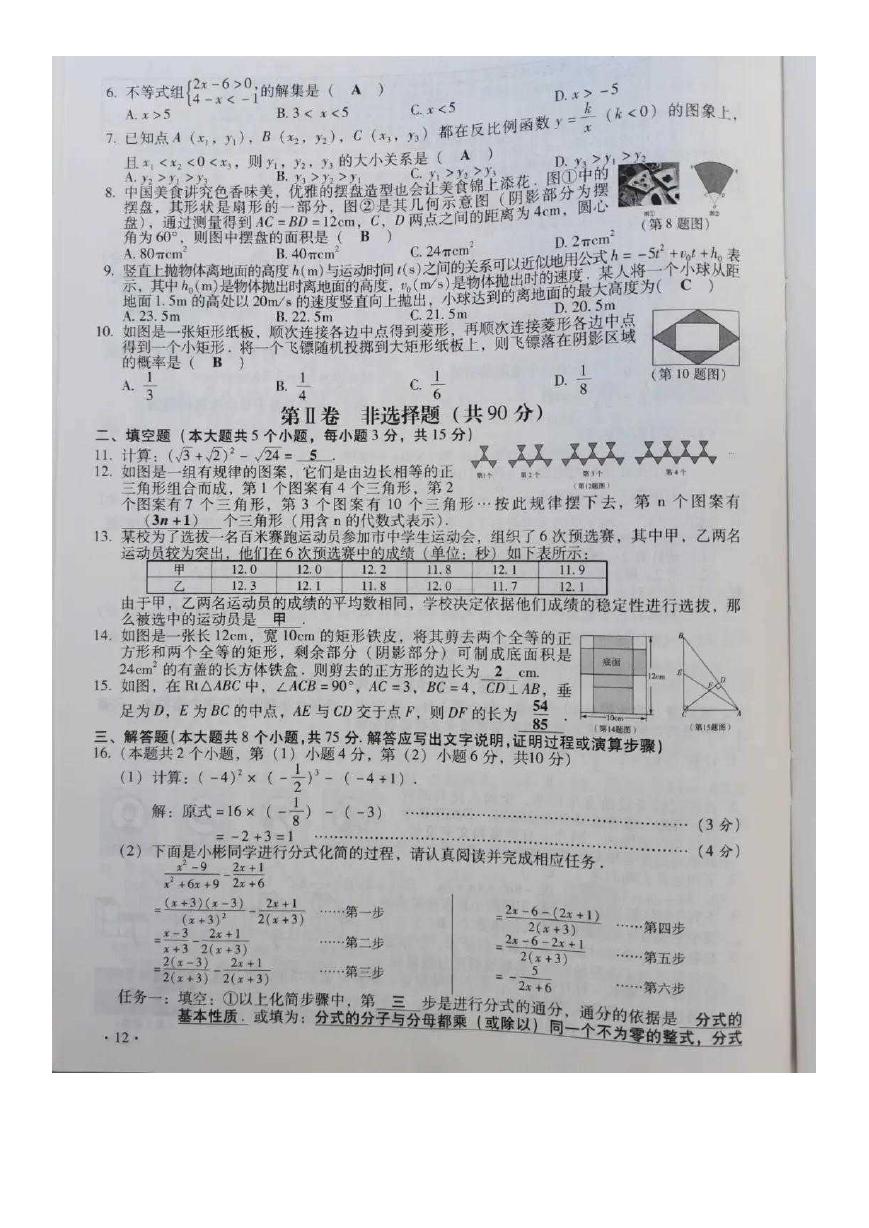 6. 不等式组{2x-6>0, 4-x<-1的解集是（ A ）
A. x>5 B. 3<x<5 C. x<5 D. x>-5
7. 已知点 A（x₁, y₁），B（x₂, y₂），C（x₃, y₃）都在反比例函数 y=k/x（k<0）的图象上，
且 x₁<x₂<0<x₃，则 y₁，y₂，y₃ 的大小关系是（ A ）
A. y₂>y₁>y₃ B. y₃>y₂>y₁ C. y₁>y₂>y₃ D. y₃>y₁>y₂
8. 中国美食讲究色香味美，优雅的摆盘造型也会让美食锦上添花．图①中的
摆盘，其形状是扇形的一部分，图②是其几何示意图（阴影部分为摆
盘），通过测量得到 AC=BD=12cm，C，D 两点之间的距离为 4cm，圆心
角为 60°，则图中摆盘的面积是（ B ）
图① 图②
（第 8 题图）
A. 80πcm² B. 40πcm² C. 24πcm² D. 2πcm²
9. 竖直上抛物体离地面的高度 h(m)与运动时间 t(s)之间的关系可以近似地用公式 h=-5t²+v₀t+h₀ 表
示，其中 h₀(m)是物体抛出时离地面的高度，v₀(m/s)是物体抛出时的速度．某人将一个小球从距
地面 1.5m 的高处以 20m/s 的速度竖直向上抛出，小球达到的离地面的最大高度为（ C ）
A. 23.5m B. 22.5m C. 21.5m D. 20.5m
10. 如图是一张矩形纸板，顺次连接各边中点得到菱形，再顺次连接菱形各边中点
得到一个小矩形．将一个飞镖随机投掷到大矩形纸板上，则飞镖落在阴影区域
的概率是（ B ）
A. 1/3 B. 1/4 C. 1/6 D. 1/8
（第 10 题图）
第Ⅱ卷 非选择题（共 90 分）
二、填空题（本大题共 5 个小题，每小题 3 分，共 15 分）
11. 计算：(√3+√2)²-√24= 5 ．
12. 如图是一组有规律的图案，它们是由边长相等的正
三角形组合而成，第 1 个图案有 4 个三角形，第 2
第1个 第2个 第3个 第4个 …
（第12题图）
个图案有 7 个三角形，第 3 个图案有 10 个三角形…按此规律摆下去，第 n 个图案有
(3n+1) 个三角形（用含 n 的代数式表示）．
13. 某校为了选拔一名百米赛跑运动员参加市中学生运动会，组织了 6 次预选赛，其中甲，乙两名
运动员较为突出，他们在 6 次预选赛中的成绩（单位：秒）如下表所示：
甲 12.0 12.0 12.2 11.8 12.1 11.9
乙 12.3 12.1 11.8 12.0 11.7 12.1
由于甲，乙两名运动员的成绩的平均数相同，学校决定依据他们成绩的稳定性进行选拔，那
么被选中的运动员是 甲 ．
14. 如图是一张长 12cm，宽 10cm 的矩形铁皮，将其剪去两个全等的正
方形和两个全等的矩形，剩余部分（阴影部分）可制成底面积是
24cm² 的有盖的长方体铁盒．则剪去的正方形的边长为 2 cm.
底面
12cm
10cm
（第14题图）
15. 如图，在 Rt△ABC 中，∠ACB=90°，AC=3，BC=4，CD⊥AB，垂
足为 D，E 为 BC 的中点，AE 与 CD 交于点 F，则 DF 的长为 54/85 ．
B
E
F
D
C
A
（第15题图）
三、解答题（本大题共 8 个小题，共 75 分．解答应写出文字说明，证明过程或演算步骤）
16.（本题共 2 个小题，第（1）小题 4 分，第（2）小题 6 分，共10 分）
（1）计算：(-4)²×(-1/2)³-(-4+1)．
解：原式=16×(-1/8)-(-3) ……………………（3 分）
=-2+3=1 ……………………（4 分）
（2）下面是小彬同学进行分式化简的过程，请认真阅读并完成相应任务．
(x²-9)/(x²+6x+9)-(2x+1)/(2x+6)
=(x+3)(x-3)/(x+3)²-(2x+1)/2(x+3) ……第一步
=(x-3)/(x+3)-(2x+1)/2(x+3) ……第二步
=2(x-3)/2(x+3)-(2x+1)/2(x+3) ……第三步
=[2x-6-(2x+1)]/2(x+3) ……第四步
=(2x-6-2x+1)/2(x+3) ……第五步
=-5/(2x+6) ……第六步
任务一：填空：①以上化简步骤中，第 三 步是进行分式的通分，通分的依据是 分式的
基本性质．或填为：分式的分子与分母都乘（或除以）同一个不为零的整式，分式
·12·